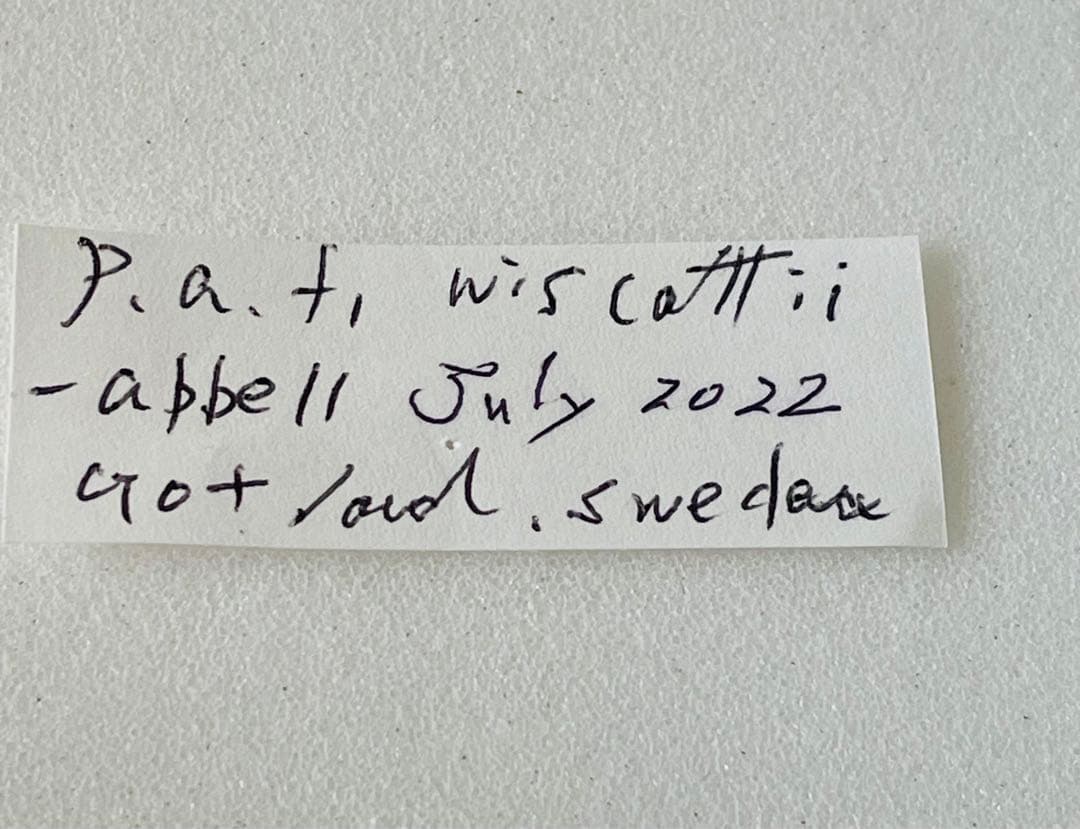 P. a. f. wiscottii
-abbell July 2022
Gotland. sweden